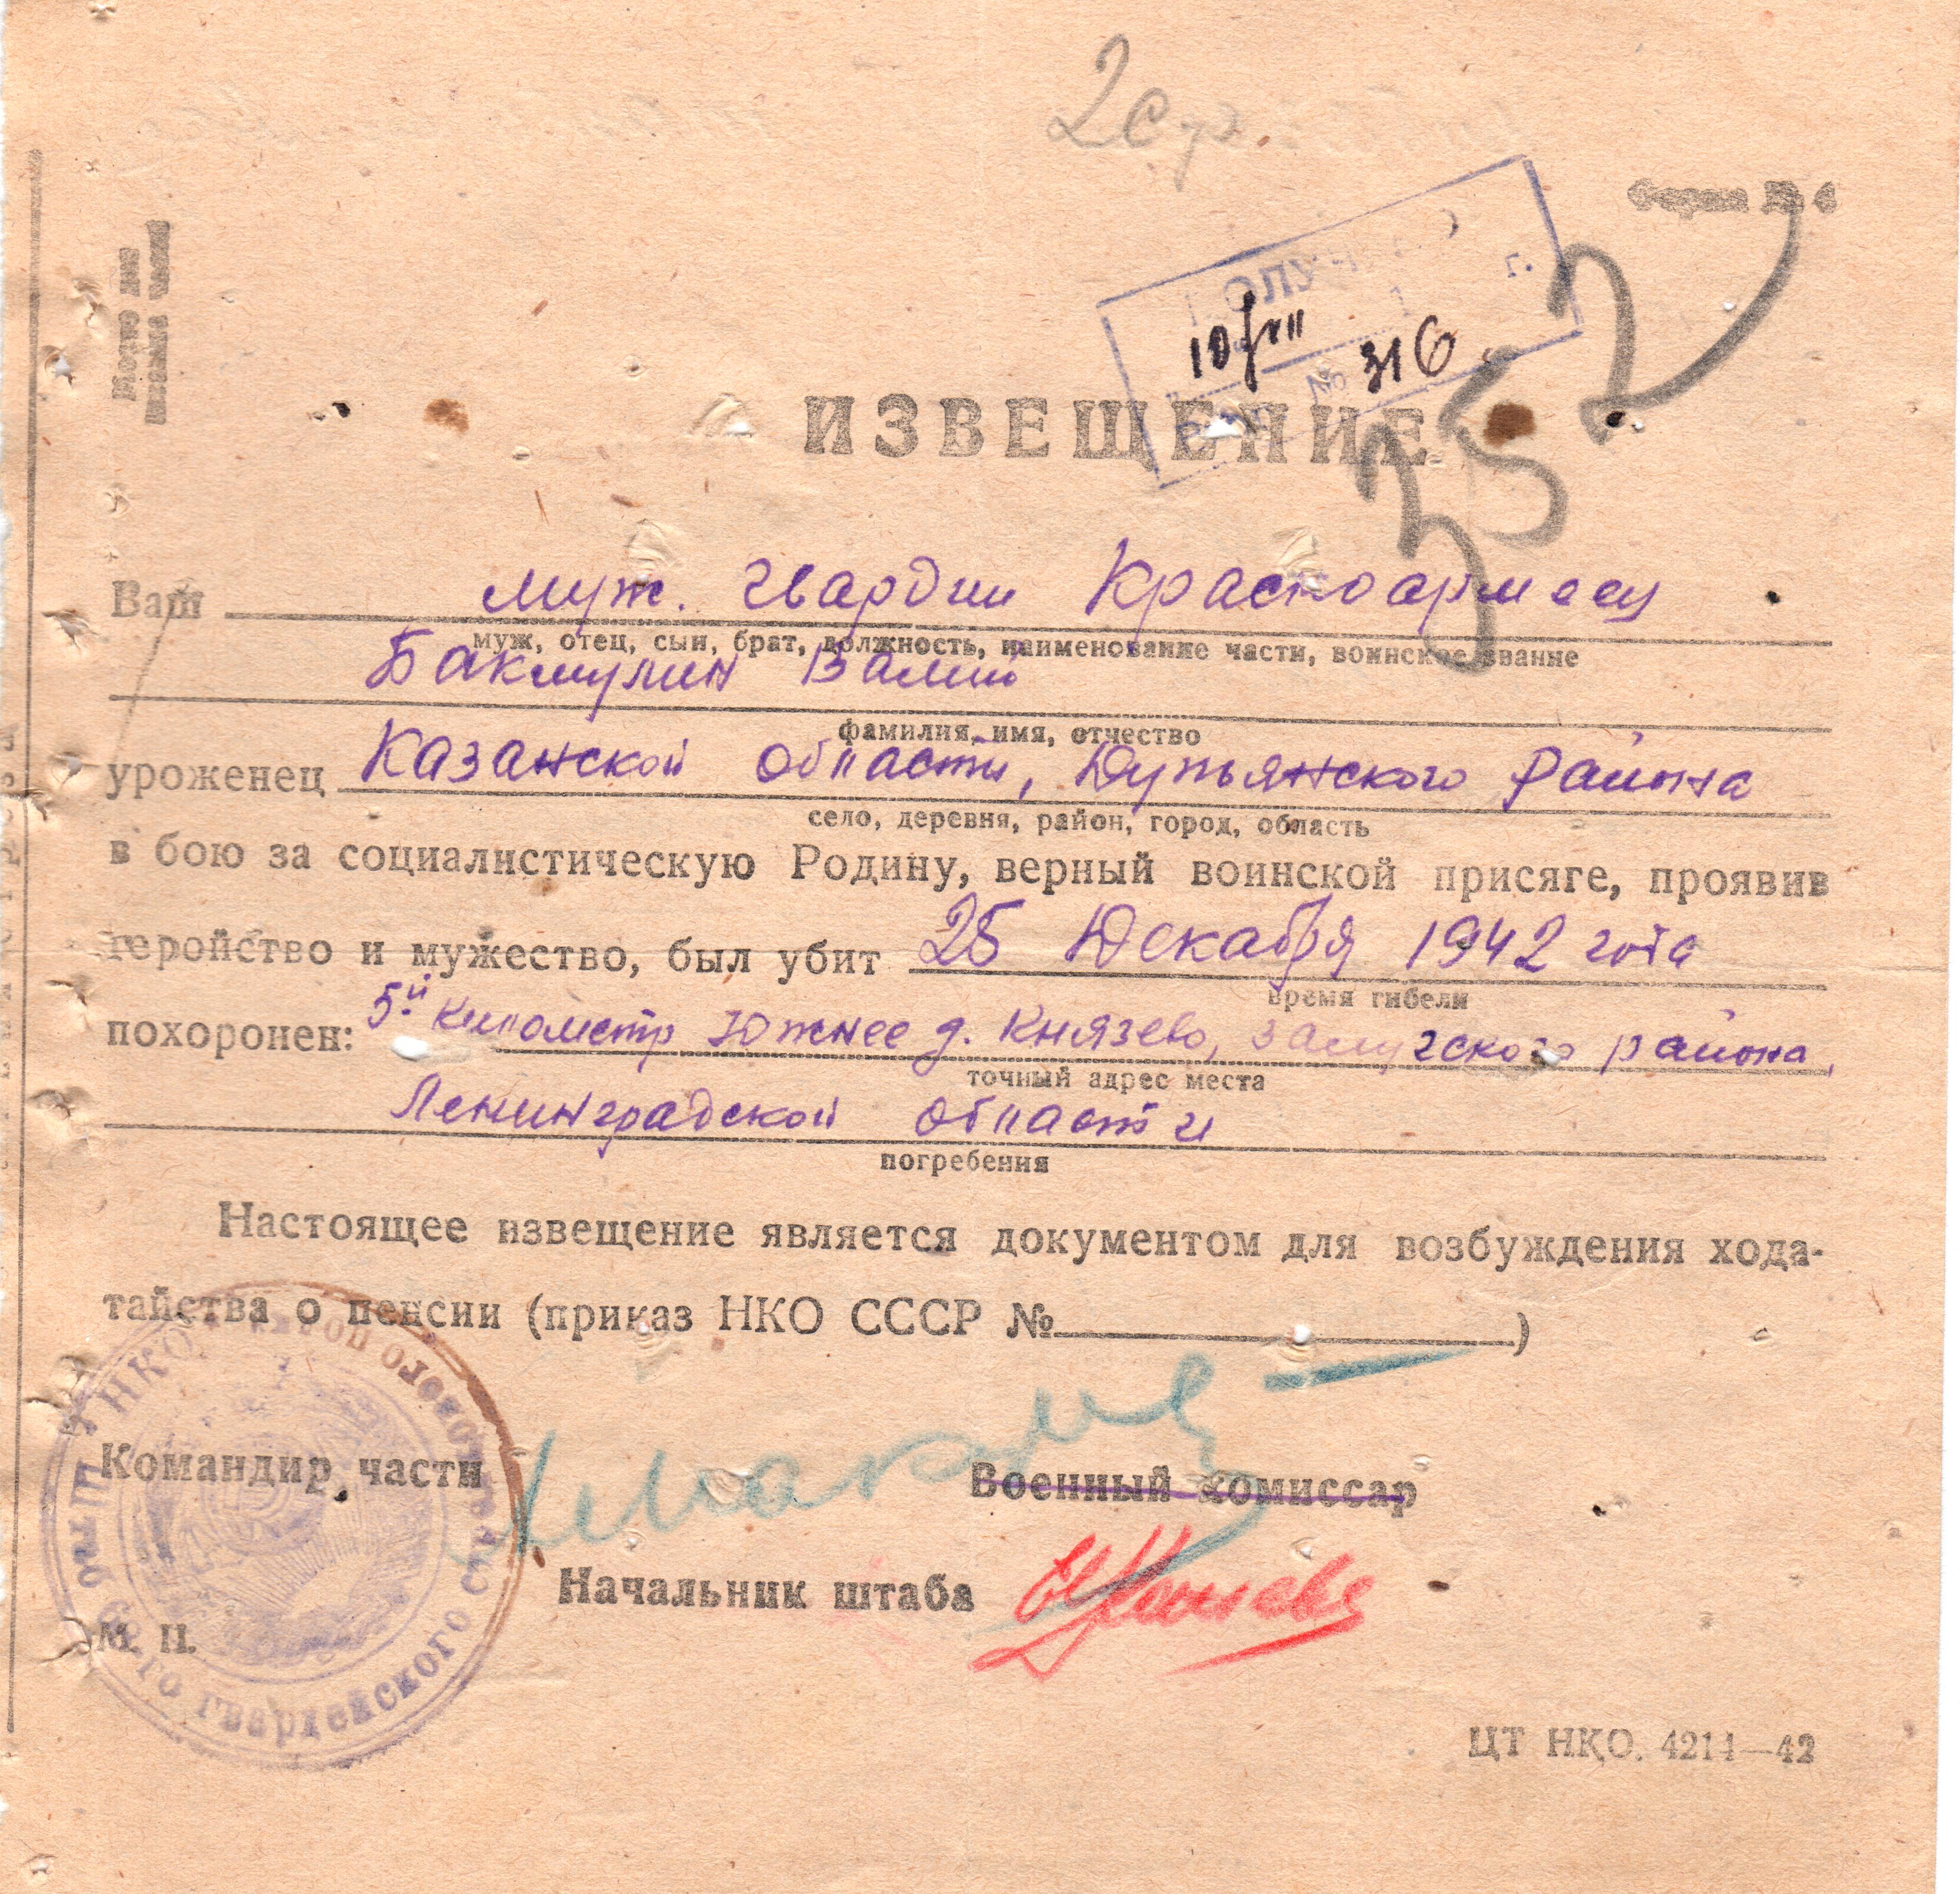 2
Форма № 4
Место для
штампа части
10/VII
№ 316
ИЗВЕЩЕНИЕ
352
Ваш муж. гвардии Красноармеец
муж, отец, сын, брат, должность, наименование части, воинское звание
Бакмулин Валий
фамилия, имя, отчество
уроженец Казанской области, района
село, деревня, район, город, область
в бою за социалистическую Родину, верный воинской присяге, проявив
геройство и мужество, был убит 25 Декабря 1942 года
время гибели
похоронен: 5й километр Южнее д. Князево, района,
точный адрес места
Ленинградской области
погребения
Настоящее извещение является документом для возбуждения хода-
тайства о пенсии (приказ НКО СССР № )
Командир части
Военный комиссар
Начальник штаба
М. П.
НКО гвардейского
ЦТ НКО. 4214—42